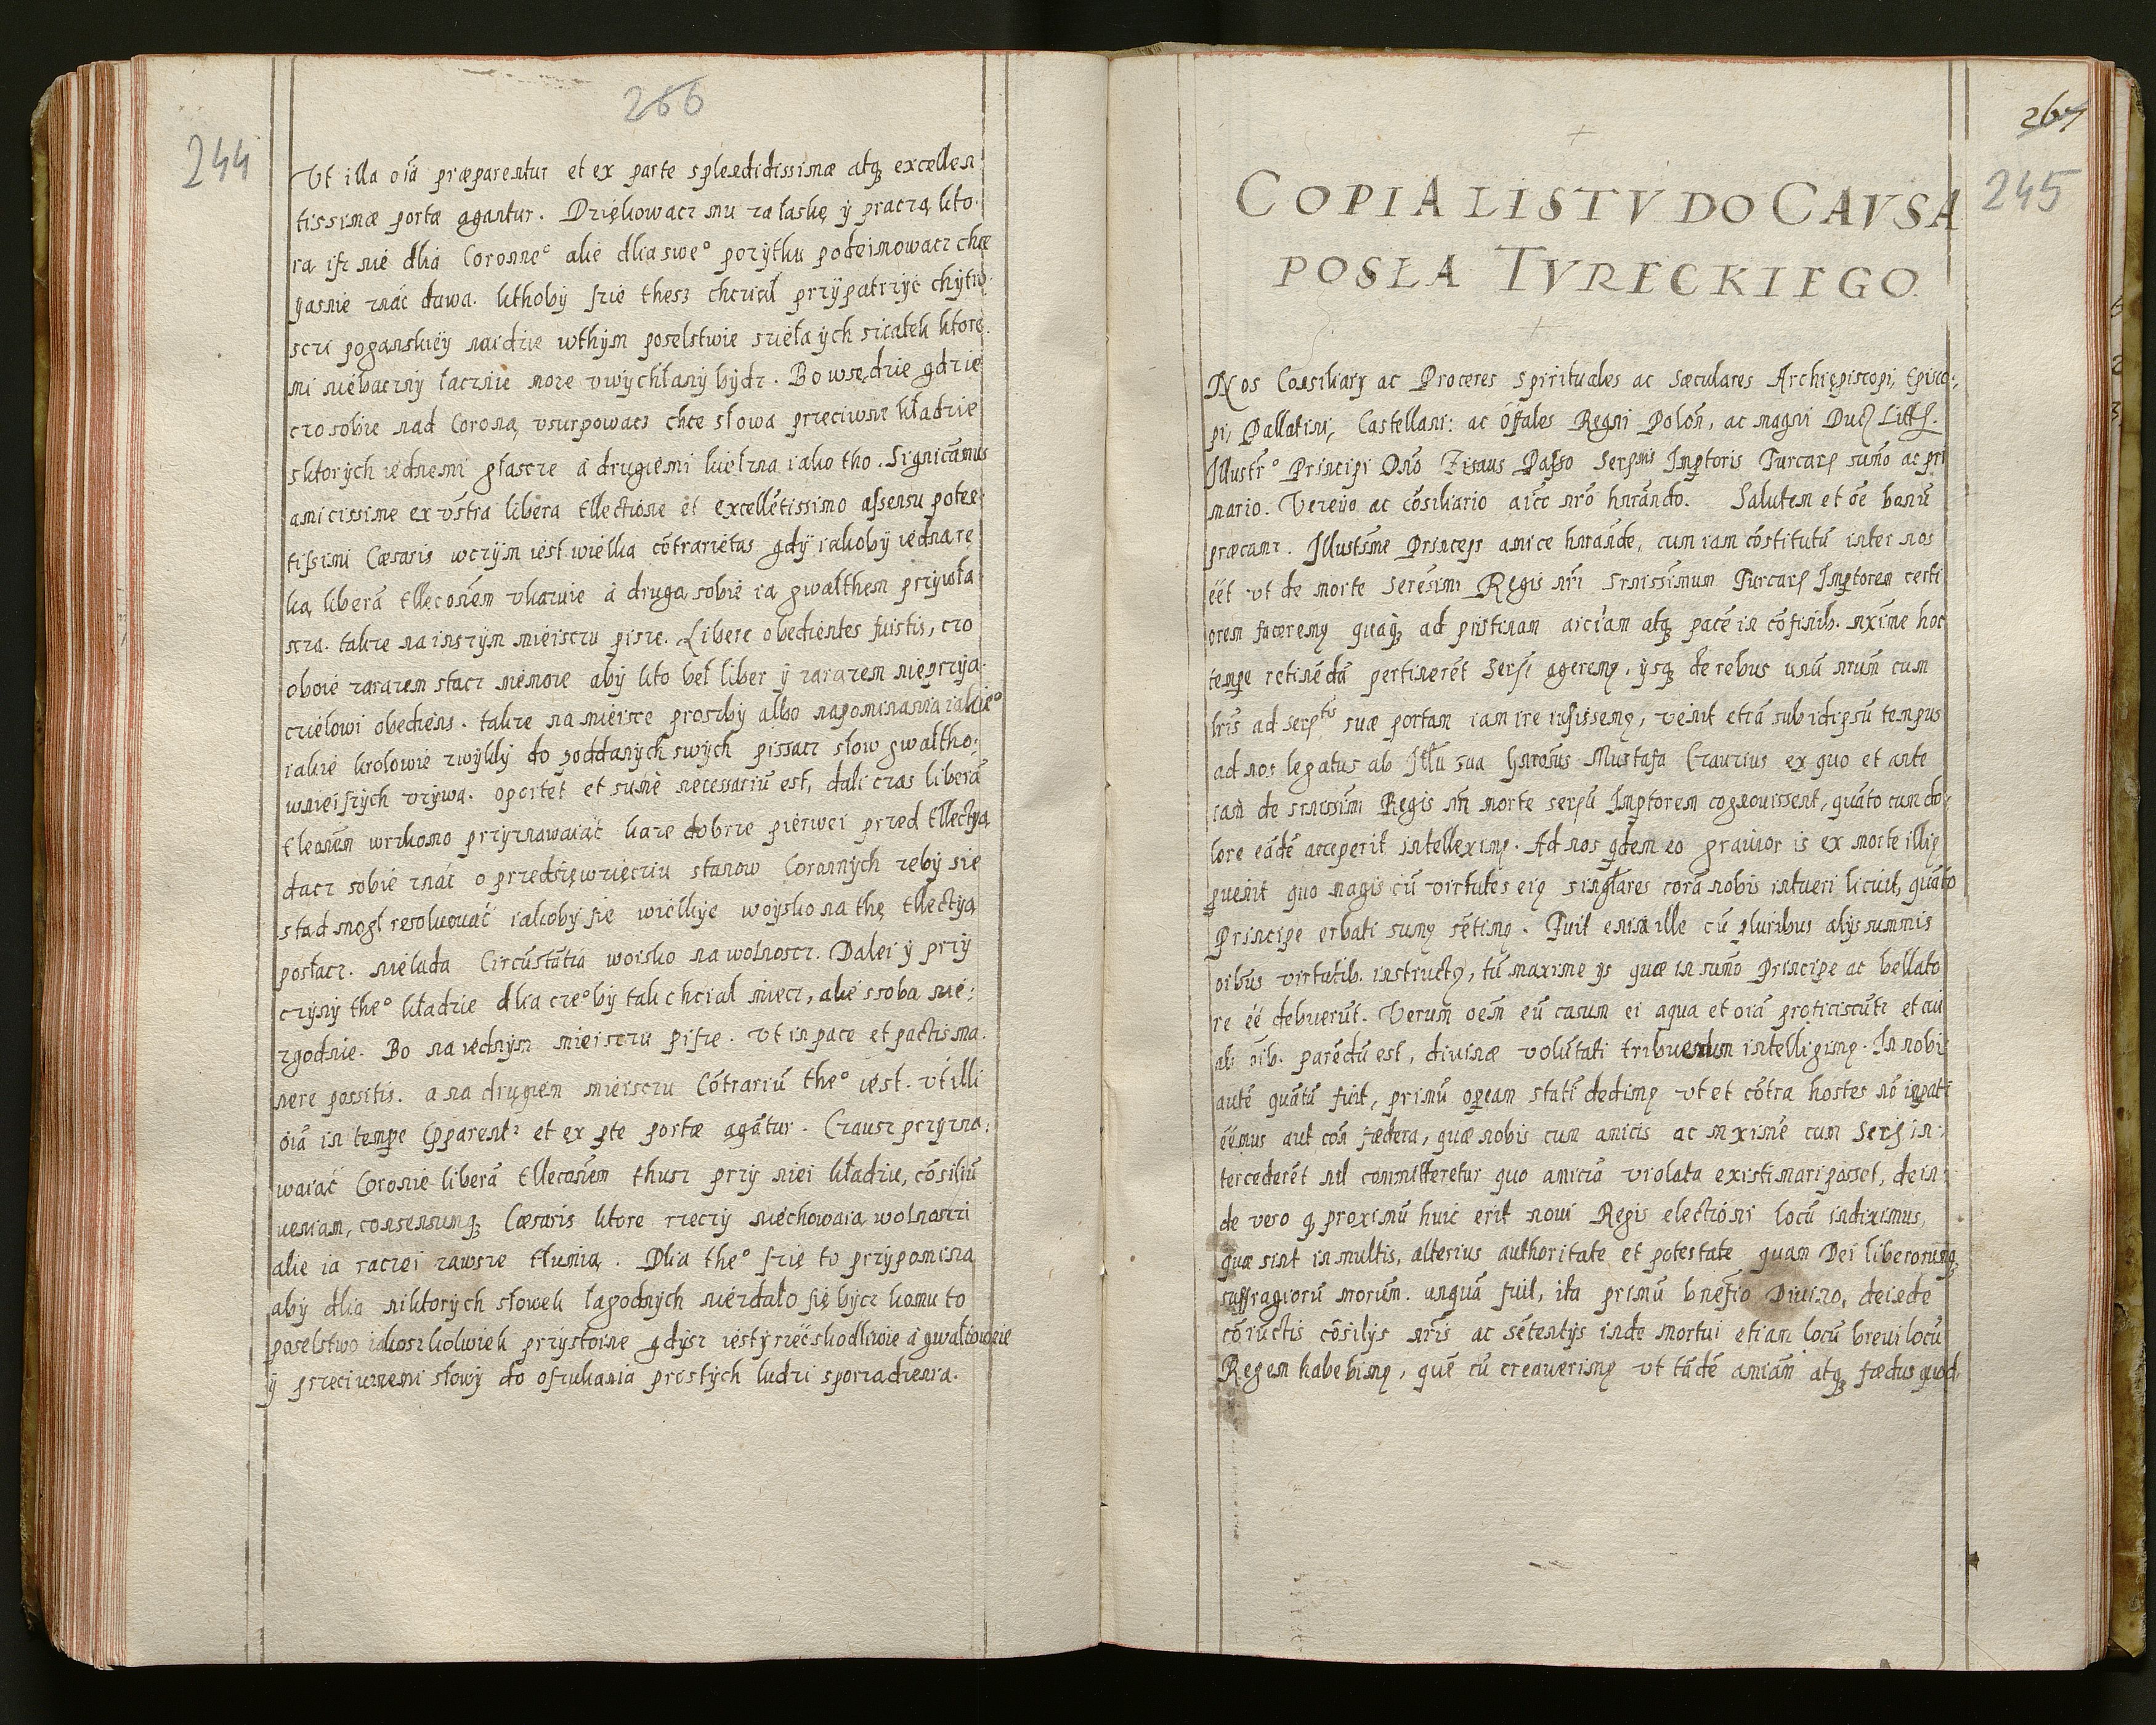 266
244
Ut illa oĩa præparentur et ex parte splendidissimæ atq; excellen
tissimæ portæ agantur. Dziękowacz mu za łaskę ÿ praczą kto-
ra isz nié dlia Coronneº alié dlia sweº pozÿtku podeimowacz chce
ÿasnie znáć dawa. kthobÿ szié thesz chcział przÿpatrzÿć chÿtro-
sczi poganskiéÿ naidzie wthÿm poselstwie sziéła ÿch sziatek ktore-
mi niébacznÿ łacznie może vwÿchłanÿ bÿdz. Bo wsędzie gdzie
czo sobie nad Coroną vsurpowacz chce słowa przeciwne kładzie
sktorÿch iednemi głaszcze á drugiémi kiełzna iako tho. Significamus
amicissime ex vs̃tra libera Ellectione et excellẽtissimo assensu poten-
tissimi Cæsaris wczÿm iest wiélka cõtrarietas gdÿ iakobÿ iedna rę
ką liberã Elleconẽm vkazuie á drugą sobié ią gwałthem przÿwła-
scza. takze na inszÿm miéisczu pisze. Libere obedientes fuistis, czo
oboié zarazem stacz niémoze abÿ kto beł liber ÿ zarazem niéprzÿa-
cziélowi obediens. takze na miéisce prozbÿ albo napominania iakieº
iakié krolowié zwÿklÿ do poddanÿch swÿch pissacz słow gwałtho-
wnieiszÿch vzÿwa. oportet et sum̃e necessariũ est, dali czas liberã
Eleonẽm wrzkomo przÿznawaiąć kaze dobrze piérwei przed Ellectÿą
dacz sobié znáć o przedsięwzięcziu stanow Coronnÿch zebÿ sie
stad mogł resoluowáć iakobÿ się wiélkÿe woÿsko na thę Ellectÿą
posłacz. niélada Circũstãtia woisko na wolnoscz. Dalei ÿ przÿ
czÿnÿ theº kładzie dlia czeºbÿ tak chciał miecz, alié ssoba nié-
zgodnie. Bo na iednÿm miéisczu pisze. Ut in pace et pactis ma-
nere possitis. a na drugiem miéisczu Cõtrariũ theº iést. vt illi
oĩa in tempe p̃parentʳ et ex pte portæ agãtur. Czausz przÿzna-
waiąć Coronié liberã Elleconẽm thusz przÿ niei kładzie, cõsiliũ
ueniam, consensumq; Cæsaris ktore rzeczÿ niéchowaią wolnosczi
alie ią raczei zawsze tłumią. Dlia theº szię to przÿpomina
abÿ dlia niktorÿch słowek łagodnÿch niézdało się bÿcz komu to
poselstwo iakoszkolwiek przÿstoine gdÿsz iést ÿ rzeć skodliwie á gwałtownie
ÿ przeciwnemi słowÿ do oszukania prostÿch ludzi sporządzenia.
267
245
COPIA LISTV DO CAVSA
POSLA TVRECKIEGO.
Nos Consiliarÿ ac Proceres Spirituales ac Sæculares Archiepiscopi, Episco-
pi, Pallatini, Castellani: ac offales Regni Polon̄, ac magni Duc Litt.
Illustrº Principi Dn̄o Zisaus Passo Serp̄mi Imp̄toris Turcar sum̄o ac pri
mario. Vereÿo ac cõsiliario aĩco nr̃o hnrãndo. Salutem et oẽ bonũ
præcamr. Illustsm̃e Princeps amice hnrãnde, cum iam cõstitutũ inter nos
eẽt ut de morte Serẽsimi Regis nr̃i Srnissimum Turcar Imp̄torem certi
orem faceremq quaq; ad pristinam aici'am atq; pacẽ in cõfinib. mxĩme hoc
tempe retinẽdã pertinerẽt Sersi agerem. ÿsq; de rebus unũ nrum̃ cum
lrĩs ad serptis suæ portam iam ire iusissem, venit etiã sub id ipsũ tempus
ad nos legatus ab Illu sua hnratus Mustafa Czausius ex quo et ante
eam de srnissimi Regis nr̃i morte serpũ Imp̄torem cognouissent, quãto cum do-
lore eãdẽ acceperit intellexim. Ad nos qdem eo grauior is ex morte illi
puenit quo magis cũ virtutes ei singlares corã nobis intueri licuit, quãto
Principe orbati sum sẽtim. Fuit enim ille cũ pluribus alÿs summis
oibus virtutib. instruct, tũ maxime ÿs quæ in sum̃o Principe ac bellato
re eẽ debuerũt. Verum oẽm eũ casum ei a qua et oĩa proficiscũtr et cui
ab oĩb. parẽdũ est, diuinæ volũtati tribuendum intelligim. In nobi
autẽ quãtũ fuit, primũ operam statĩ dedim ut et cõtra hostes nõ impati
eẽmus aut con fædera, quæ nobis cum amicis ac mxime cum Serp in-
tercederẽt nil committeretur quo amicia violata existimari posset, dein
de vero q proximũ huic erit noui Regis electioni locũ indiximus,
quæ sint in multis, alterius authoritate et potestate quam Dei liberorumq
suffragiorũ nrorum. unquã fuit, ita primũ bnefio Diuino, deinde
cõiuctis cõsilÿs nr̃is ac sẽtentÿs inde mortui etiam locũ breui locũ
Regem habebim, quẽ cũ creauerim ut eãdẽ amiam atq; fædus quod